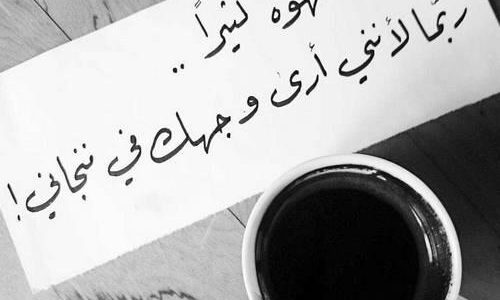 قهوه كثيراً ..
ربّما لأنني أرى وجهك في فنجاني !